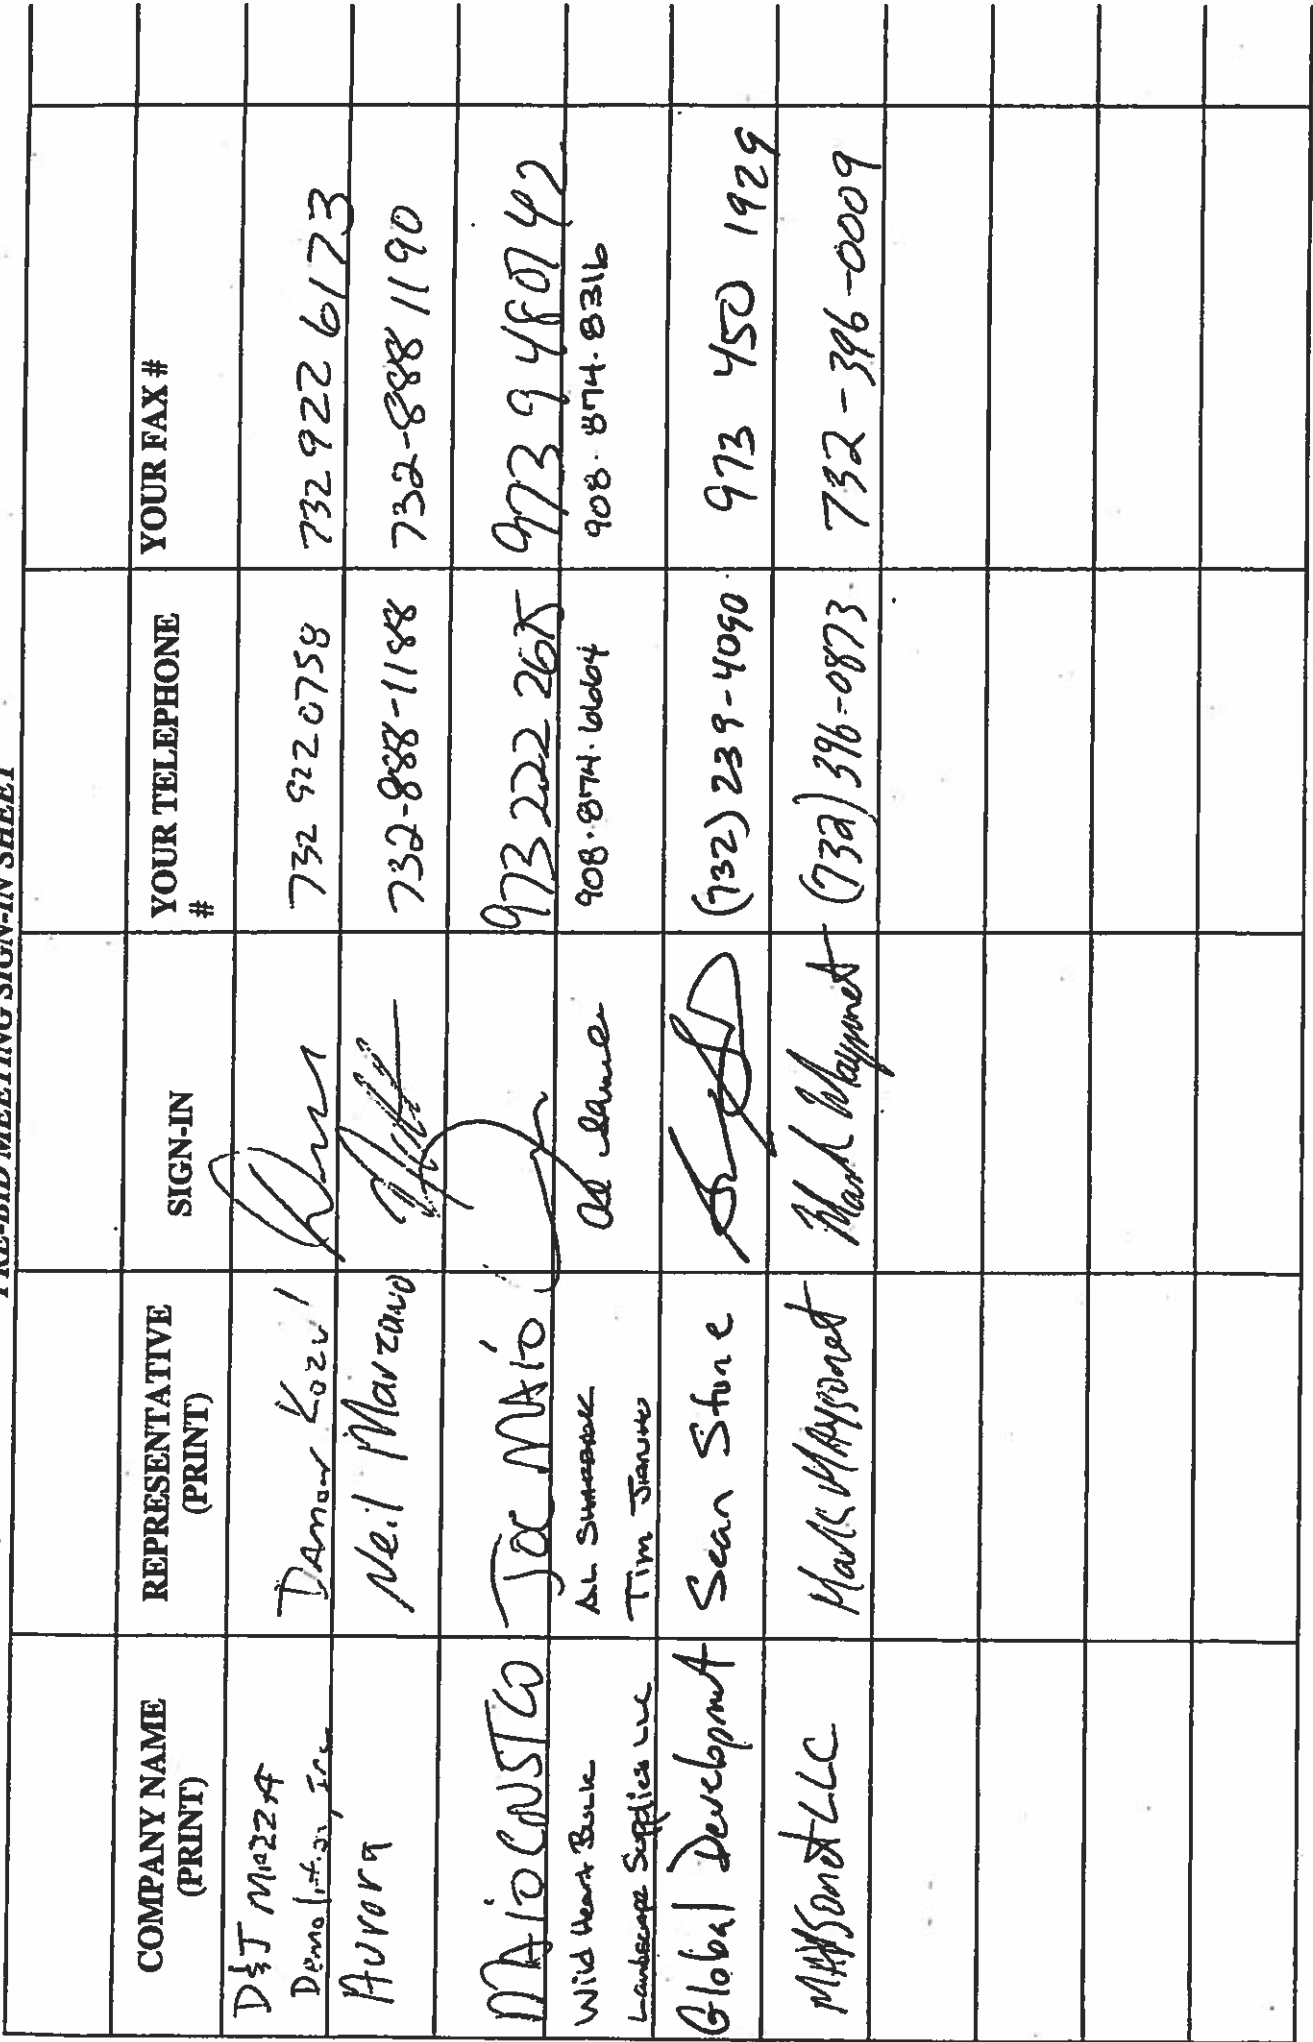 PRE-BID MEETING SIGN-IN SHEET
COMPANY NAME (PRINT) REPRESENTATIVE (PRINT) SIGN-IN YOUR TELEPHONE # YOUR FAX #
D&J Mazza Demolition, Inc Damon Kozul 732 922 0758 732 922 6173
Aurora Neil Marzano 732-888-1188 732-888 1190
MAIO CNST CO Joe MAIO 973 222 267 973 948 0742
Wild Heart Bulk AL 908.874.6664 908.874.8316
Landscape Supplies LLC Tim
Global Development Sean Stone (732) 239-4090 973 450 1929
MAYSonet LLC Mark MAysonet Mark Maysonet (732) 396-0873 732-396-0009